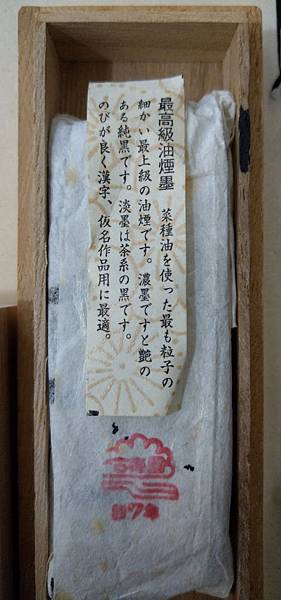 最高級油煙墨　菜種油を使った最も粒子の
細かい最上級の油煙です。濃墨ですと艶の
ある純黒です。淡墨は茶系の黒です。
のびが良く漢字、仮名作品用に最適。